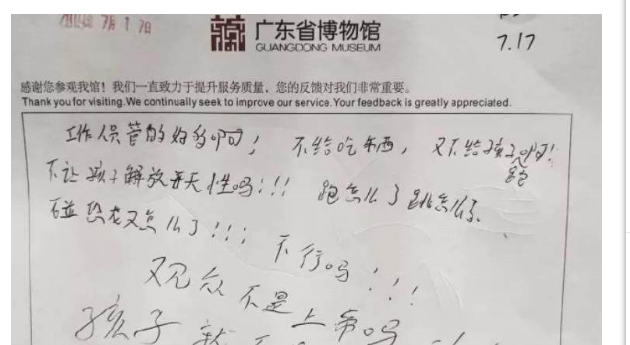 7月17日
广东省博物馆
GUANGDONG MUSEUM
7.17
感谢您参观我馆！我们一直致力于提升服务质量，您的反馈对我们非常重要。
Thank you for visiting.We continually seek to improve our service.Your feedback is greatly appreciated.
工作人员管的好多啊！不给吃东西，又不给孩子跑啊！
不让孩子解放开天性吗！！！跑怎么了跳怎么了
碰恐龙又怎么了！！！不行吗！！！
观众不是上帝吗
孩子就